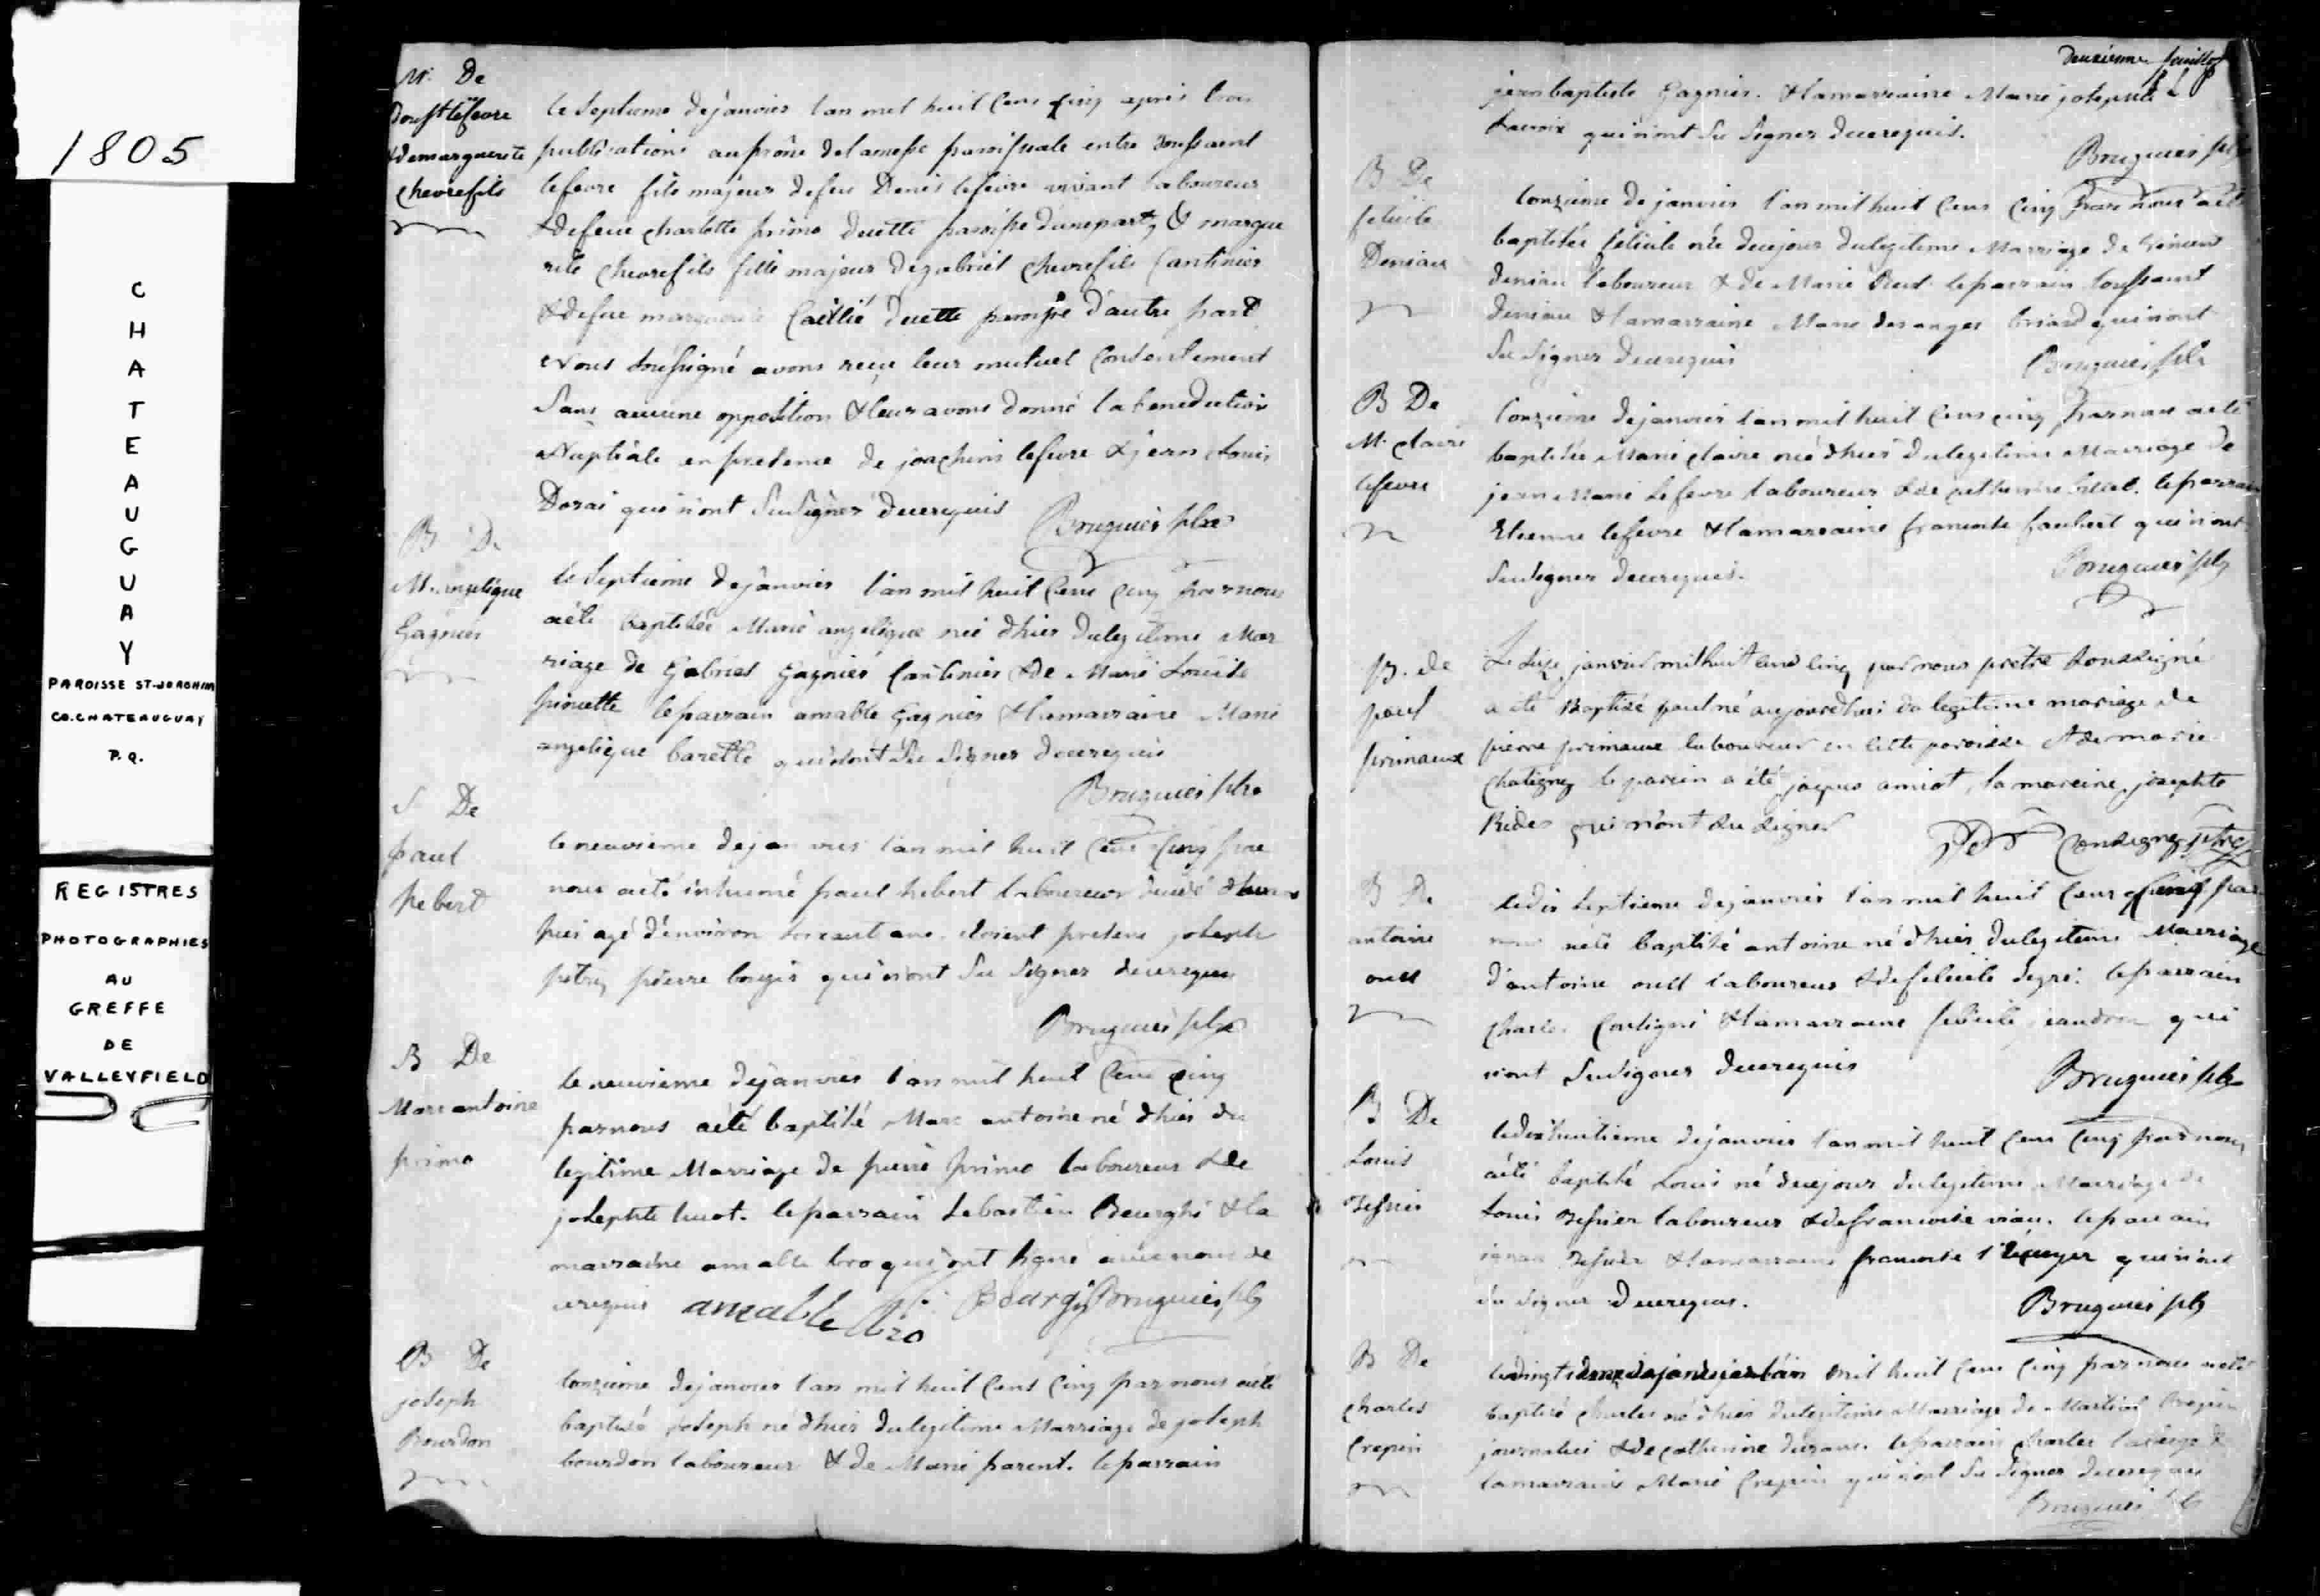 1805
CHATEAUGUAY
PAROISSE ST-JOACHIM
CO. CHATEAUGUAY
P.Q.
REGISTRES
PHOTOGRAPHIES
AU
GREFFE
DE
VALLEYFIELD
M. De
Toust lefevre
& de marguerite
chevrefils
le septieme de janvier l'an mil huit cens cinq après trois
publications au prône de la messe paroissiale entre toussaint
lefevre fils majeur de feu Denis lefevre vivant laboureur
& de feue charlotte primo de cette paroisse d'une part, & margue
rite chevrefils fille majeur de gabriel chevrefils cantinier
& de feue marguerite Caillié de cette paroisse d'autre part
Nous soussigné avons reçu leur mutuel consentement
sans aucune opposition & leur avons donné la benediction
Nuptiale en presence de joachim lefevre & jean louis
Dorai qui n'ont su signer de ce requis
Bruguier ptre
B De
M. angelique
Gagnier
le septieme de janvier l'an mil huit cens cinq par nous
a été baptisée Marie angelique née d'hier du legitime Mar
riage de Gabriel Gagnier Cantinier & de Marie Louise
pinette le parrain amable Gagnier & la marraine Marie
angelique barette qui n'ont su signer de ce requis
Bruguier ptre
S De
paul
hebert
le neuvieme de janvier l'an mil huit cens cinq par
nous a été inhumé paul hebert laboureur decedé
agé d'environ ans. etoient presens joseph
petry pierre bougis qui n'ont su signer de ce requis
Bruguier ptre
B De
Marc antoine
primo
le neuvieme de janvier l'an mil huit cens cinq
par nous a été baptisé Marc antoine né d'hier du
legitime Marriage de pierre primo laboureur & de
josephte huot. le parrain Sebastien Bourghi & la
marraine amable bro qui ont signé avec nous de
ce requis amable bro Bourgi Bruguier ptre
B De
joseph
Bourdon
l'onzieme de janvier l'an mil huit cens cinq par nous a été
baptisé joseph né d'hier du legitime Marriage de joseph
bourdon laboureur & de Marie parent. le parrain
deuxieme feuillet
jean baptiste Gagnier. & la marraine Marie josephte
Lacroix qui n'ont su signer de ce requis.
Bruguier ptre
B De
felicite
Deniau
l'onzieme de janvier l'an mil huit cens cinq par nous a été
baptisée felicite née de ce jour du legitime Marriage de Vincent
deniau laboureur & de Marie le parrain toussaint
deniau & la marraine Marie des anges briand qui n'ont
su signer de ce requis
Bruguier ptre
B De
M. claire
lefevre
l'onzieme de janvier l'an mil huit cens cinq par nous a été
baptisée Marie claire née d'hier du legitime Marriage de
jean Marie Lefevre laboureur & de catherine le parrain
Etienne lefevre & la marraine francoise faubert qui n'ont
su signer de ce requis.
Bruguier ptre
B. de
paul
primaux
Le seize janvier mil huit cens cinq par nous pretre soussigné
a été Baptisé paul né aujourdhui du legitime mariage de
pierre primaux laboureur en cette paroisse & de marie
Chatigny le parein a été jaques amiot, la mareine josephte
Rides qui n'ont su signer
Consigny ptre
B De
antoine
ouel
le dix septieme de janvier l'an mil huit cens cinq par
nous a été baptisé antoine né d'hier du legitime Marriage
d'antoine ouel laboureur & de felicite degré. le parrain
charles Coutigni & la marraine felicite qui
n'ont su signer de ce requis
Bruguier ptre
B De
Louis
Besner
le dix huitieme de janvier l'an mil huit cens cinq par nous
a été baptisé Louis né de ce jour du legitime Marriage de
louis Besner laboureur & de francoise viau. le parrain
Besner & la marraine francoise l'écuyer qui n'ont
su signer de ce requis.
Bruguier ptre
B De
charles
Crepin
l'an mil huit cens cinq par nous a été
baptisé charles né d'hier du legitime Marriage de Martial Crepin
journalier & de catherine le parrain charles &
la marraine Marie Crepin qui n'ont su signer de ce requis
Bruguier ptre